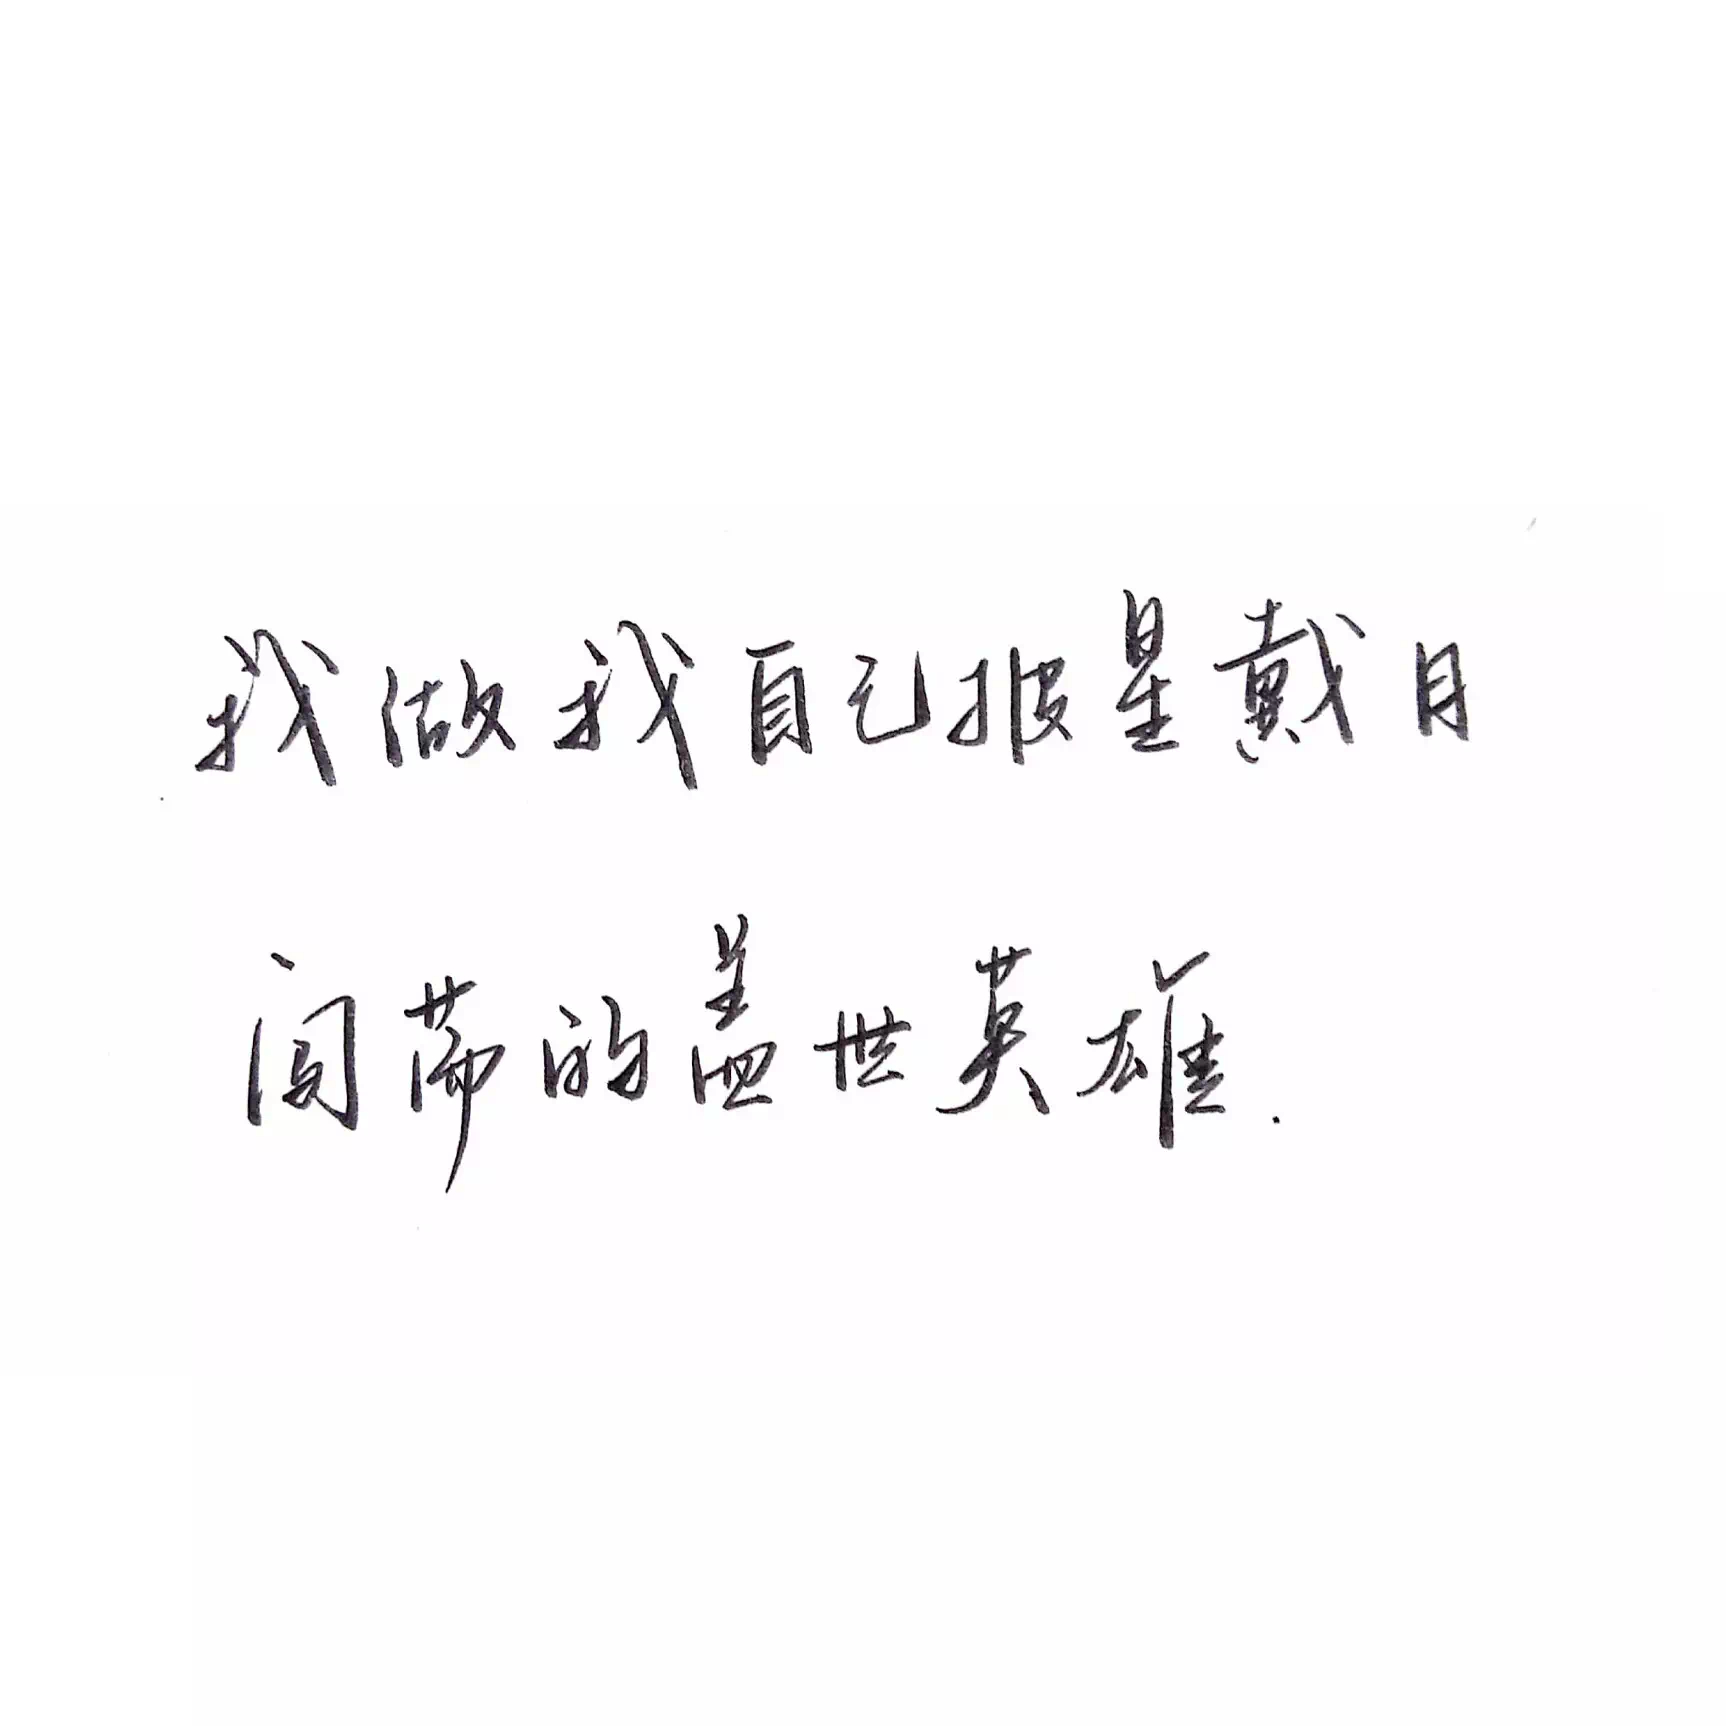 我做我自己披星戴月
闯荡的盖世英雄.